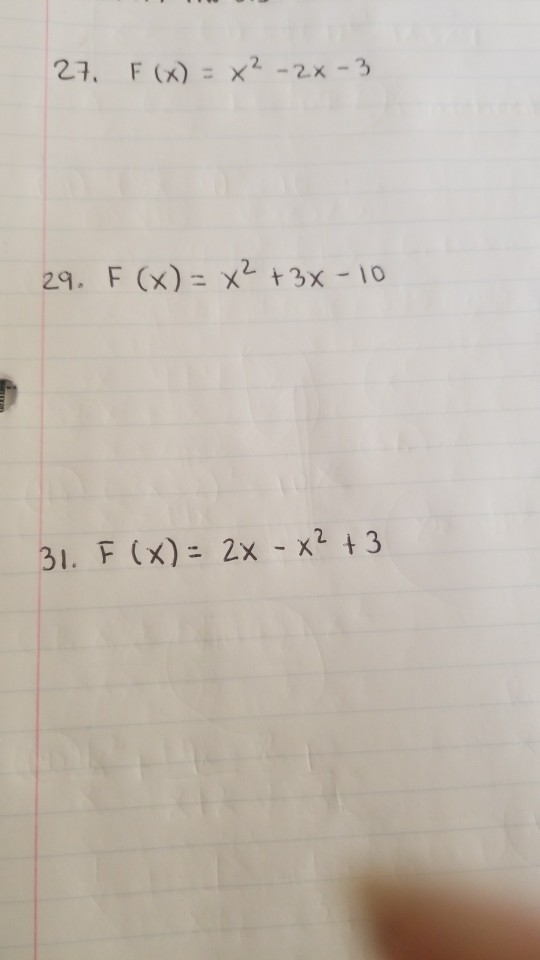 27. F (x) = x² - 2x - 3
29. F (x) = x² + 3x - 10
31. F (x) = 2x - x² + 3